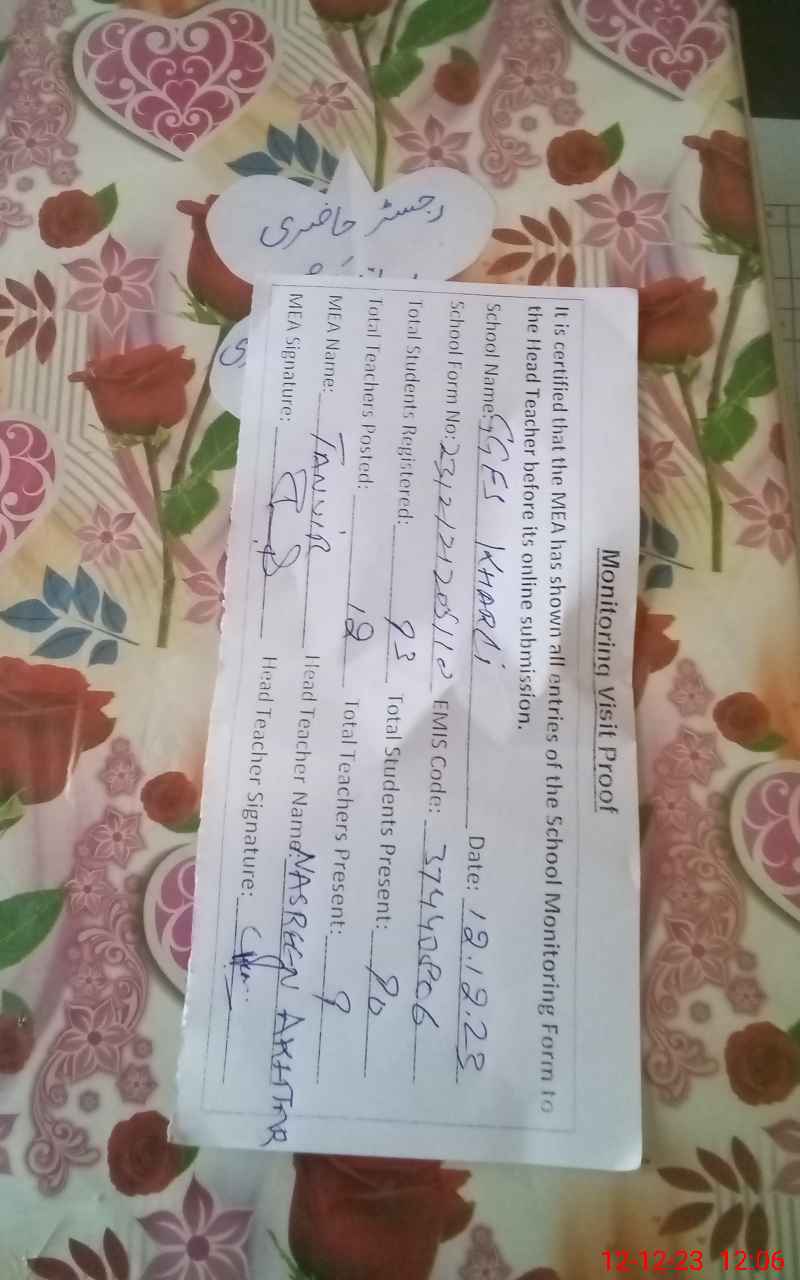 رجسٹر حاضری
Monitoring Visit Proof
It is certified that the MEA has shown all entries of the School Monitoring Form to
the Head Teacher before its online submission.
School Name: GGES KHARLI Date: 12.12.23
School Form No: EMIS Code:
Total Students Registered: 93 Total Students Present: 90
Total Teachers Posted: 12 Total Teachers Present: 9
MEA Name: TANVIR Head Teacher Name: NASREEN AKHTAR
MEA Signature: Head Teacher Signature:
12-12-23 12:06